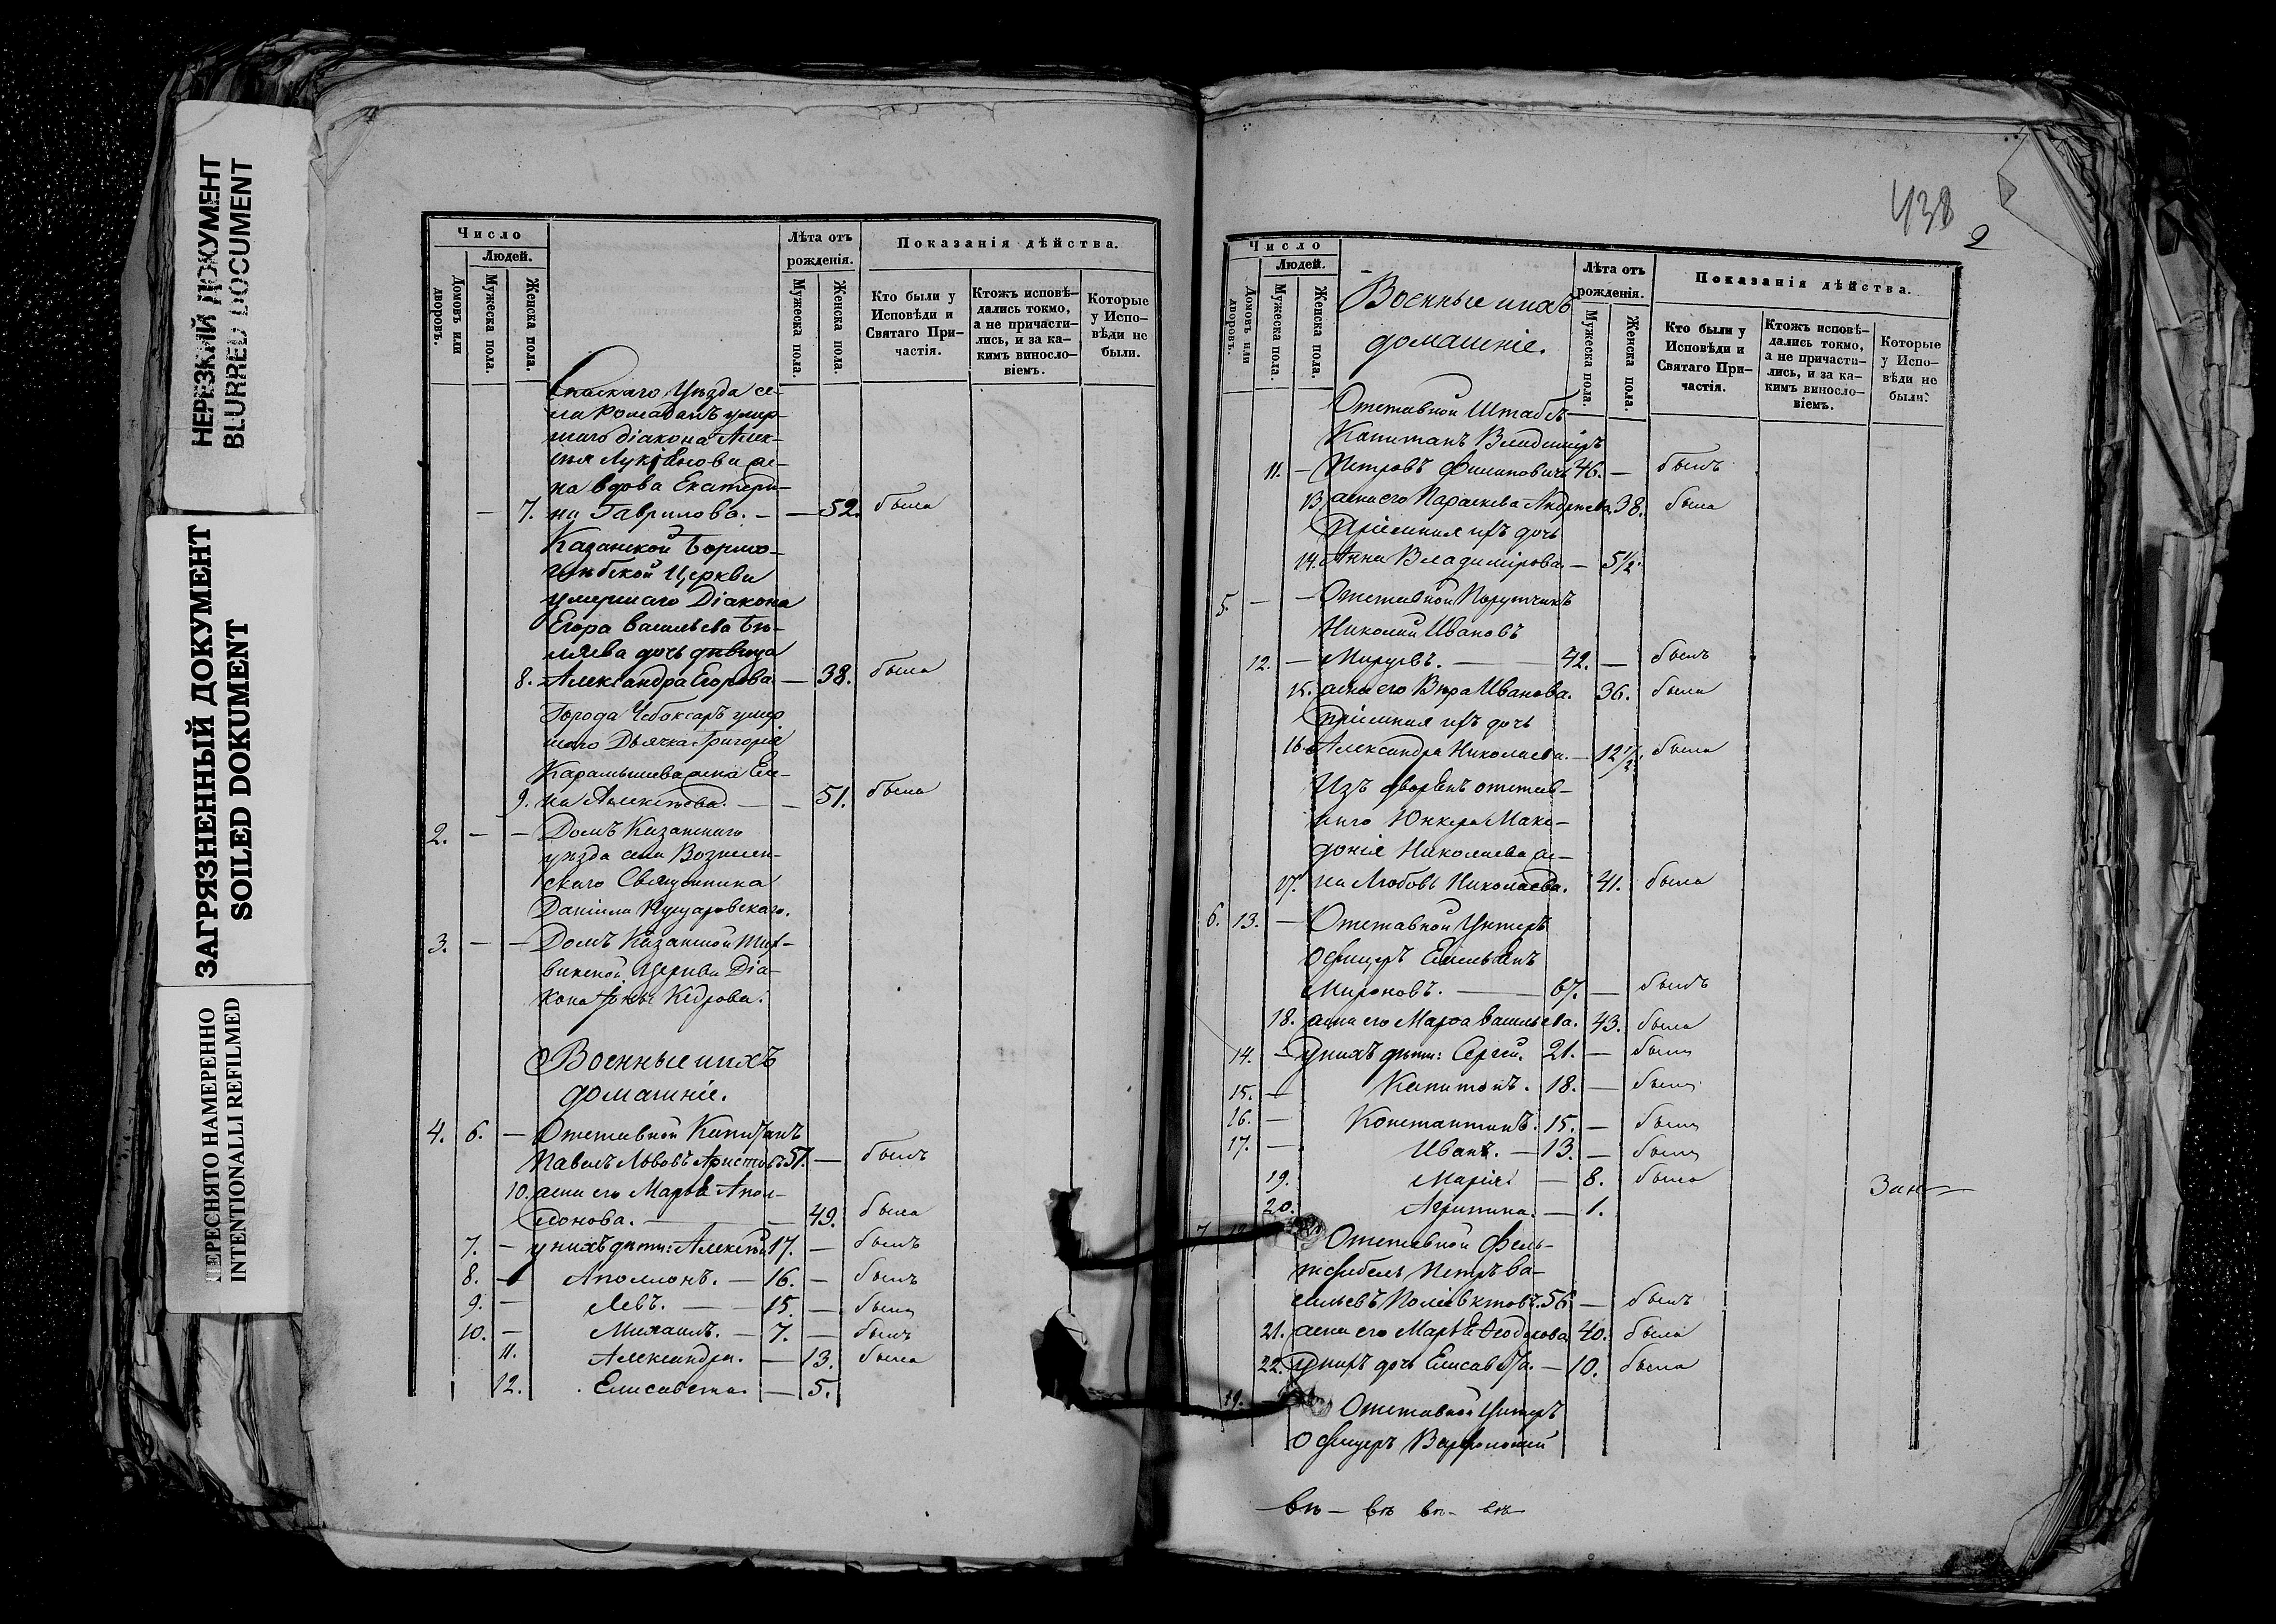 НЕРЕЗКИЙ ДОКУМЕНТ
BLURRED DOCUMENT
ЗАГРЯЗНЕННЫЙ ДОКУМЕНТ
SOILED DOKUMENT
ПЕРЕСНЯТО НАМЕРЕННО
INTENTIONALLI REFILMED
Число
Людей.
Домовъ или дворовъ.
Мужеска пола.
Женска пола.
Лѣта отъ рожденія.
Мужеска пола.
Женска пола.
Показанія дѣйства.
Кто были у Исповѣди и Святаго При-частія.
Ктожъ исповѣ-дались токмо, а не причасти-лись, и за ка-кимъ винословіемъ.
Которые у Испо-вѣди не были.
Спаскаго Уѣзда се-
ла Ромаданъ умер-
шаго діакона Алек-
сѣя Лукіанова же-
на вдова Екатери-
— 7. на Гаврилова. — — 52. была
Казанской
Церкви
умершаго Діакона
Егора Васильева Бе-
ляева дочь дѣвица
8. Александра Егорова — 38. была
Города Чебоксаръ умер
шаго Дьячка Григорія
Карамышева жена Еле-
9. на Алексѣева. — — 51. была
2. — — Домъ Казанскаго
уѣзда села Вознесен-
скаго Священника
Даніила
3. — — Домъ Казанской Тих-
винской Церкви Діа-
кона Кедрова.
Военные и ихъ
домашніе.
4. 6. — Отставной Капитанъ
Павелъ Львовъ Аристовъ 57. — былъ
10. жена его Марья Апол-
лонова. — — 49. была
7. — у нихъ дѣти: Алексѣй 17. — былъ
8. — Аполлонъ. — 16. — былъ
9. — Левъ. — 15. — былъ
10. — Михаилъ. — 7. — былъ
11. Александра. — 13. была
12. Елисавета — 5.
438
2
Число
Людей.
Домовъ или дворовъ.
Мужеска пола.
Женска пола.
Военные и ихъ
домашніе.
Лѣта отъ рожденія.
Мужеска пола.
Женска пола.
Показанія дѣйства.
Кто были у Исповѣди и Святаго При-частія.
Ктожъ исповѣ-дались токмо, а не причасти-лись, и за ка-кимъ винословіемъ.
Которые у Испо-вѣди не были.
Отставной Штабсъ-
Капитанъ Владиміръ
11. — Петровъ Филиповичъ 46. — былъ
13. жена его Параскева Андреева 38. была
Пріемная ихъ дочь
14. Анна Владимірова — 5 1/2.
5. — — Отставной Порутчикъ
Николай Ивановъ
12. — — 42. — былъ
15. жена его Вѣра Иванова. 36. была
Пріемная ихъ дочь
16. Александра Николаева. — 12 1/2. была
Изъ дворянъ отстав-
наго Юнкера Маке-
донія Николаева же-
17. на Любовь Николаева. 41. была
6. 13. — Отставной Унтеръ
Офицеръ Емельянъ
Мироновъ. — 67. — былъ
18. жена его Марфа Васильева. 43. была
14. — У нихъ дѣти: Сергѣй. 21. — былъ
15. — Капитонъ. 18. — былъ
16. — Константинъ. 15. — былъ
17. — Иванъ. — 13. — былъ
19. Марія — 8. была
20. Агрипина. — 1.
Зан
7 18. Отставной Фельд-
фебель Петръ Ва-
сильевъ Поліевктовъ. 56 — былъ
21. жена его Марья Ѳеодорова 40. была
22. У нихъ дочь Елисавета. — 10. была
19. Отставной Унтеръ
Офицеръ Варфоломей